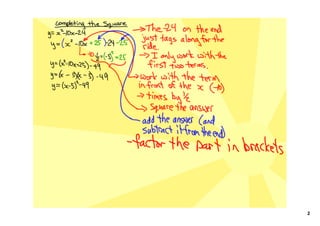 Completing the Square
y=x²-10x-24
y=(x²-10x +25)-24-25
-10 ½=(-5)²=25
y=(x²-10x+25)-49
y=(x-5)(x-5)-49
y=(x-5)²-49
→The -24 on the end
just tags along for the
ride.
→I only work with the
first two terms.
→work with the term
in front of the x (-10)
→times by ½
→ Square the answer
- add the answer (and
subtract it from the end)
-factor the part in brackets
2